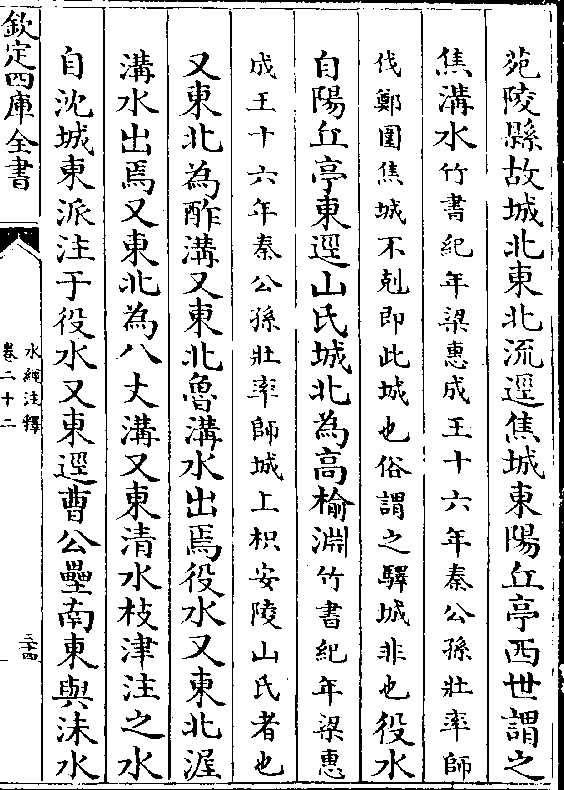 苑陵縣故城北東北流逕焦城東陽丘亭西世謂之
焦溝水竹書紀年梁惠成王十六年秦公孫壯率師
伐鄭圍焦城不剋即此城也俗謂之驛城非也役水
自陽丘亭東逕山氏城北為高榆淵竹書紀年梁惠
成王十六年秦公孫壯率師城上枳安陵山氏者也
又東北為酢溝又東北魯溝水出焉役水又東北渥
溝水出焉又東北為八丈溝又東清水枝津注之水
自沈城東派注于役水又東逕曹公壘南東與沬水
欽定四庫全書
水經注釋
卷二十二
三十四